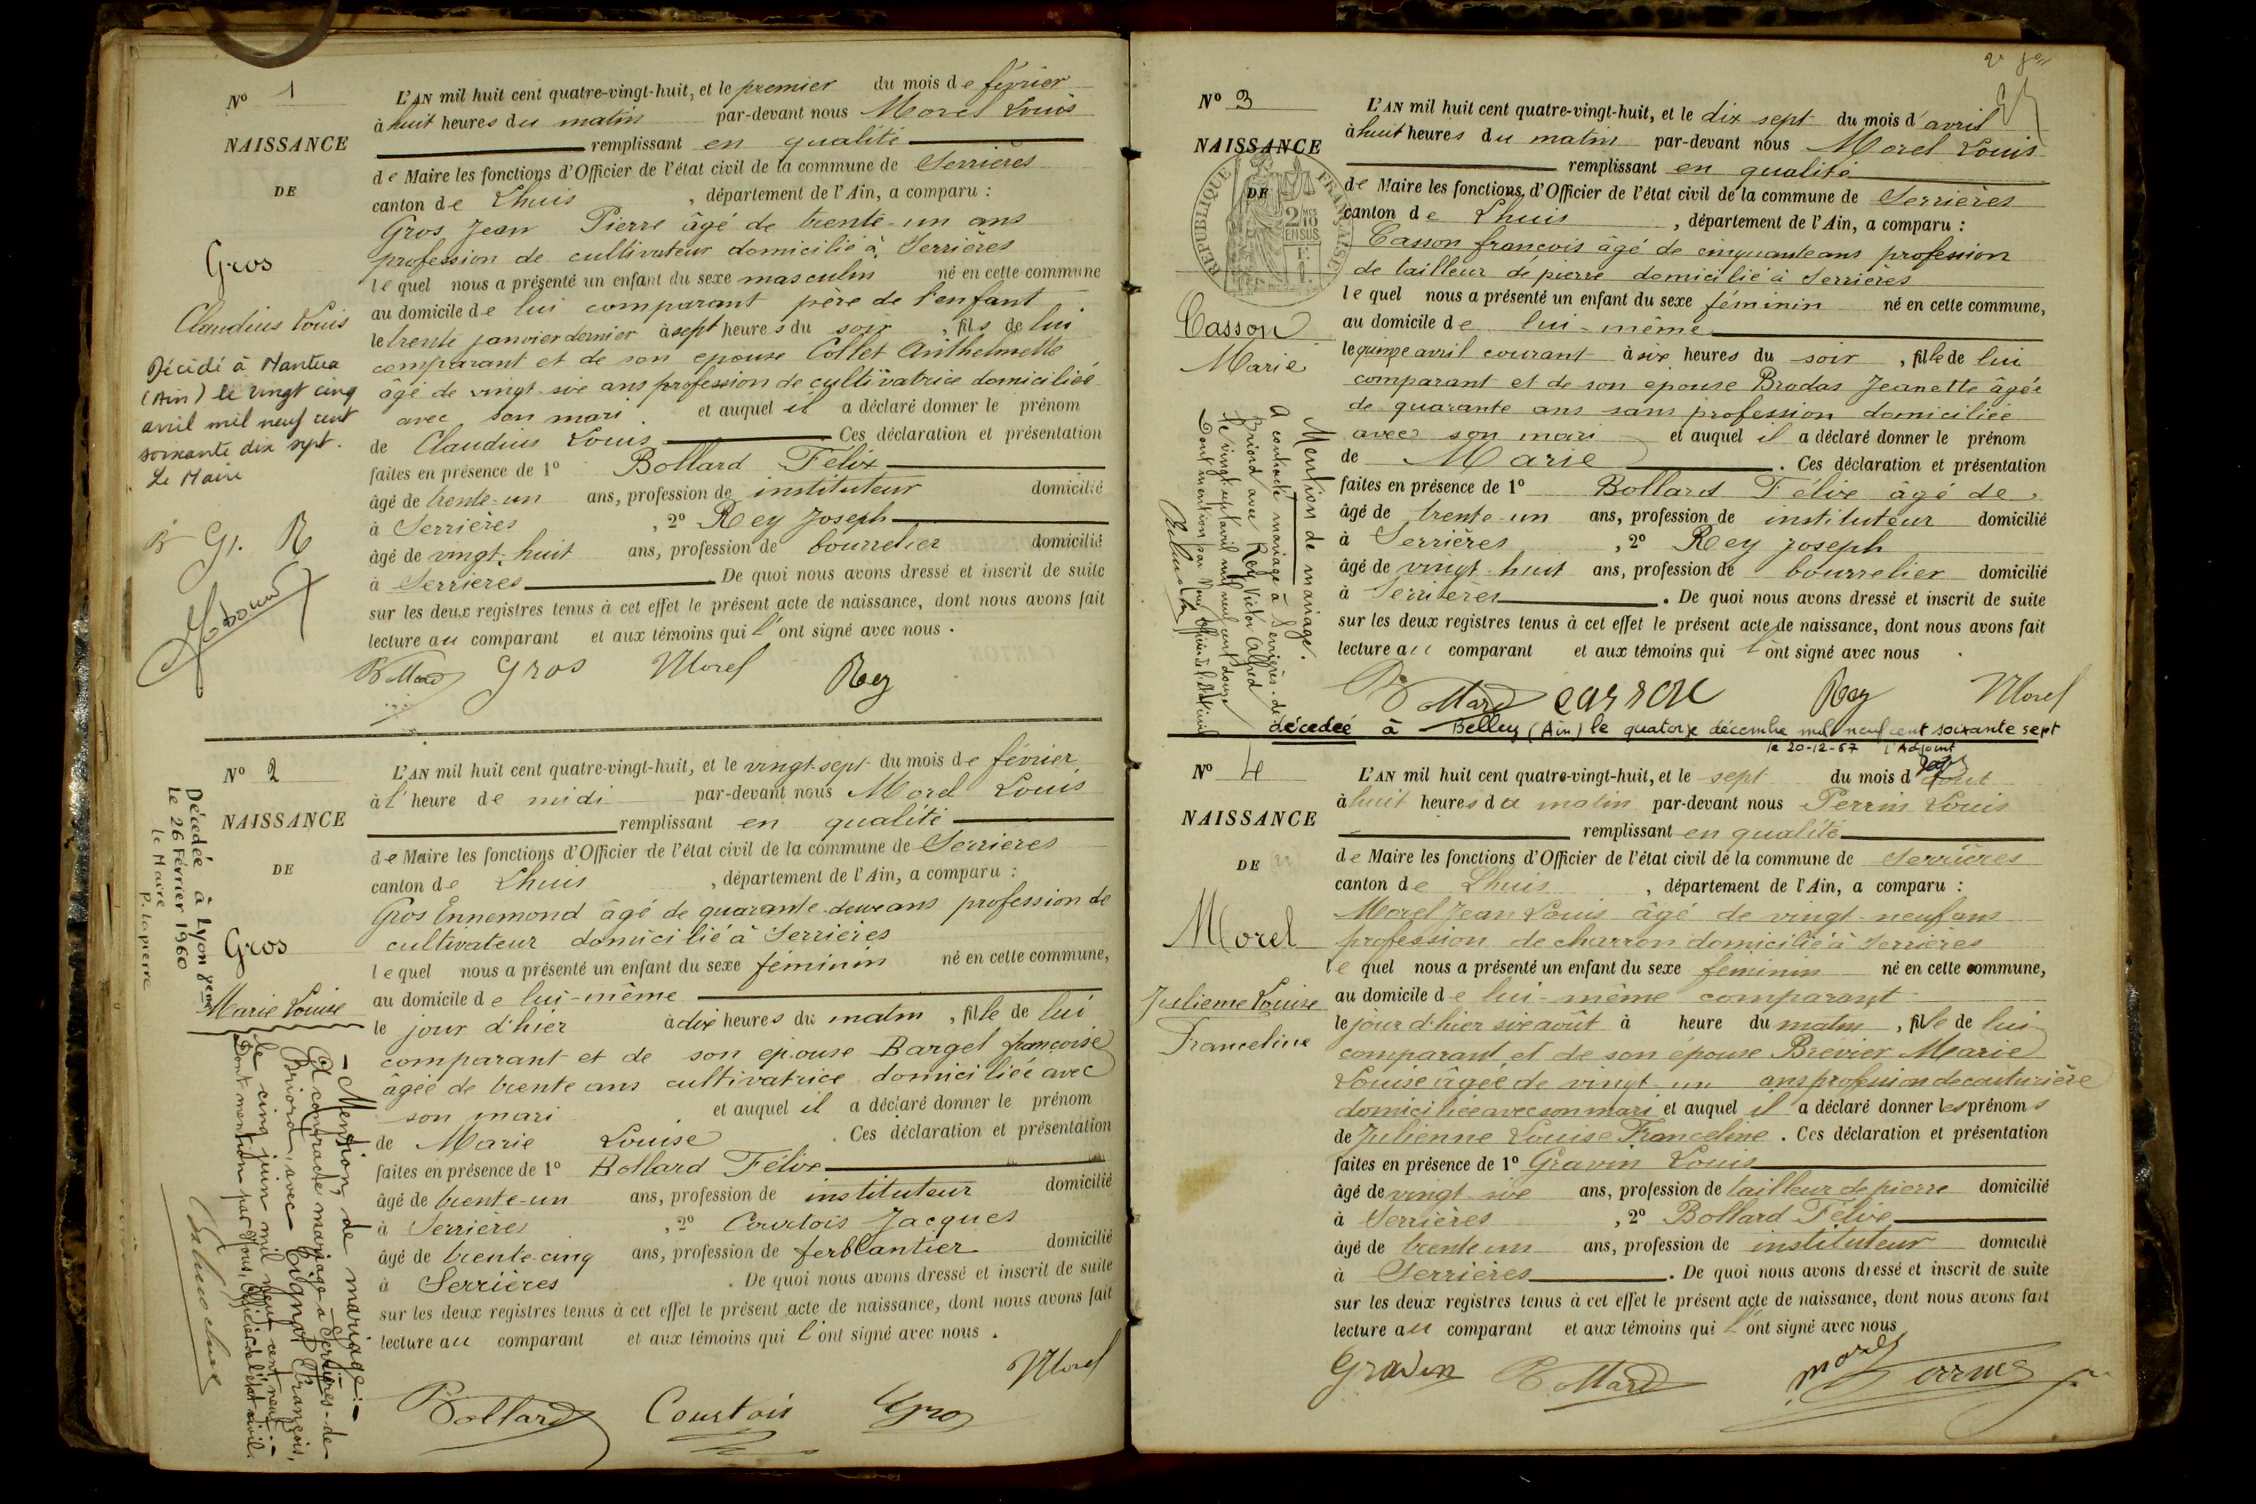 N° 1
NAISSANCE
DE
Gros
Claudius Louis
Décédé à Nantua
(Ain) le vingt cinq
avril mil neuf cent
soixante dix sept.
Le Maire
L'AN mil huit cent quatre-vingt-huit, et le premier du mois de février
à huit heures du matin par-devant nous Morel Louis
remplissant en qualité
de Maire les fonctions d'Officier de l'état civil de la commune de Serrières
canton de Lhuis, département de l'Ain, a comparu :
Gros Jean Pierre âgé de trente-un ans
profession de cultivateur domicilié à Serrières
lequel nous a présenté un enfant du sexe masculin né en cette commune
au domicile de lui comparant père de l'enfant
le trente janvier dernier à sept heures du soir, fils de lui
comparant et de son epouse Collet Anthelmette
âgé de vingt-six ans profession de cultivatrice domiciliée
avec son mari et auquel il a déclaré donner le prénom
de Claudius Louis Ces déclaration et présentation
faites en présence de 1° Bollard Félix
âgé de trente-un ans, profession de instituteur domicilié
à Serrières, 2° Rey Joseph
âgé de vingt-huit ans, profession de bourrelier domicilié
à Serrières De quoi nous avons dressé et inscrit de suite
sur les deux registres tenus à cet effet le présent acte de naissance, dont nous avons fait
lecture au comparant et aux témoins qui l'ont signé avec nous.
Bollard Gros Morel Rey
N° 2
NAISSANCE
DE
Gros
Marie Louise
Décédée à Lyon 8eme
le 26 Février 1960
le Maire
P. Lapierre
- Mention de mariage :-
A contracté mariage à Serrières-de-
Briord, avec Tignat François,
le cinq juin mil neuf cent neuf.-
Dont mention par Nous, Officier de l'état civil.
L'AN mil huit cent quatre-vingt-huit, et le vingt-sept du mois de février
à l'heure de midi par-devant nous Morel Louis
remplissant en qualité
de Maire les fonctions d'Officier de l'état civil de la commune de Serrières
canton de Lhuis, département de l'Ain, a comparu :
Gros Ennemond âgé de quarante-deux ans profession de
cultivateur domicilié à Serrières
lequel nous a présenté un enfant du sexe féminin né en cette commune,
au domicile de lui-même
le jour d'hier à dix heures du matin, fille de lui
comparant et de son epouse Barget françoise
âgée de trente ans cultivatrice domiciliée avec
son mari et auquel il a déclaré donner le prénom
de Marie Louise. Ces déclaration et présentation
faites en présence de 1° Bollard Félix
âgé de trente-un ans, profession de instituteur domicilié
à Serrières, 2° Courtois Jacques
âgé de trente-cinq ans, profession de ferblantier domicilié
à Serrières. De quoi nous avons dressé et inscrit de suite
sur les deux registres tenus à cet effet le présent acte de naissance, dont nous avons fait
lecture au comparant et aux témoins qui l'ont signé avec nous.
Morel
Bollard Courtois Gros
N° 3
NAISSANCE
DE
REPUBLIQUE FRANÇAISE
2/10 EN SUS
Casson
Marie
Mention de mariage.
A contracté mariage à Serrières-de-
Briord avec Rey Victor Alfred
le vingt-sept avril mil neuf cent douze
Dont mention par Nous, Officier de l'état civil
L'AN mil huit cent quatre-vingt-huit, et le dix sept du mois d'avril
à huit heures du matin par-devant nous Morel Louis
remplissant en qualité
de Maire les fonctions d'Officier de l'état civil de la commune de Serrières
canton de Lhuis, département de l'Ain, a comparu :
Casson françois âgé de cinquante ans profession
de tailleur de pierre domicilié à Serrières
lequel nous a présenté un enfant du sexe féminin né en cette commune,
au domicile de lui-même
le quinze avril courant à six heures du soir, fille de lui
comparant et de son epouse Brodas Jeanette âgée
de quarante ans sans profession domiciliée
avec son mari et auquel il a déclaré donner le prénom
de Marie. Ces déclaration et présentation
faites en présence de 1° Bollard Félix âgé de
âgé de trente-un ans, profession de instituteur domicilié
à Serrières, 2° Rey Joseph
âgé de vingt-huit ans, profession de bourrelier domicilié
à Serrières. De quoi nous avons dressé et inscrit de suite
sur les deux registres tenus à cet effet le présent acte de naissance, dont nous avons fait
lecture au comparant et aux témoins qui l'ont signé avec nous.
Bollard casson Rey Morel
décedeé à Belley (Ain) le quatorze décembre mil neuf cent soixante sept
le 20-12-67 l'Adjoint
N° 4
NAISSANCE
DE
Morel
Julienne Louise
Franceline
L'AN mil huit cent quatre-vingt-huit, et le sept du mois d'août
à huit heures du matin par-devant nous Perrin Louis
remplissant en qualité
de Maire les fonctions d'Officier de l'état civil de la commune de Serrières
canton de Lhuis, département de l'Ain, a comparu :
Morel Jean Louis âgé de vingt-neuf ans
profession de charron domicilié à Serrières
lequel nous a présenté un enfant du sexe féminin né en cette commune,
au domicile de lui-même comparant
le jour d'hier six août à heure du matin, fille de lui
comparant et de son épouse Brevier Marie
Louise âgée de vingt-un ans profession de couturière
domiciliée avec son mari et auquel il a déclaré donner les prénoms
de Julienne Louise Franceline. Ces déclaration et présentation
faites en présence de 1° Gravin Louis
âgé de vingt-six ans, profession de tailleur de pierre domicilié
à Serrières, 2° Bollard Félix
âgé de trente un ans, profession de instituteur domicilié
à Serrières. De quoi nous avons dressé et inscrit de suite
sur les deux registres tenus à cet effet le présent acte de naissance, dont nous avons fait
lecture au comparant et aux témoins qui l'ont signé avec nous
Gravin Bollard Morel Perrin